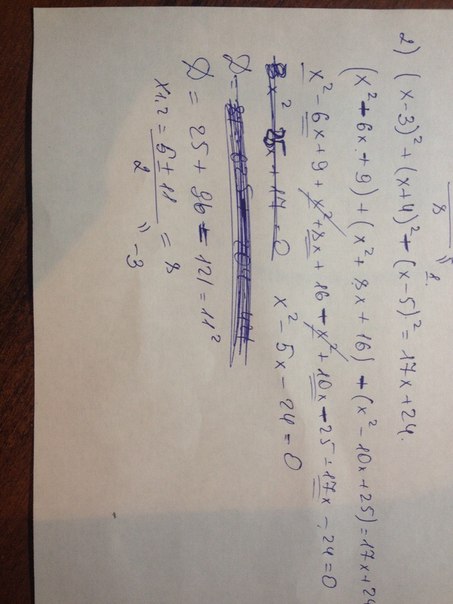 8
1.
2) (x-3)² + (x+4)² - (x-5)² = 17x + 24.
(x² - 6x + 9) + (x² + 8x + 16) - (x² - 10x + 25) = 17x + 24
x² - 6x + 9 + x² + 8x + 16 - x² + 10x - 25 - 17x - 24 = 0
x² - 5x - 24 = 0
D = 25 + 96 = 121 = 11²
x1,2 = 5 ± 11 / 2 = 8
-3